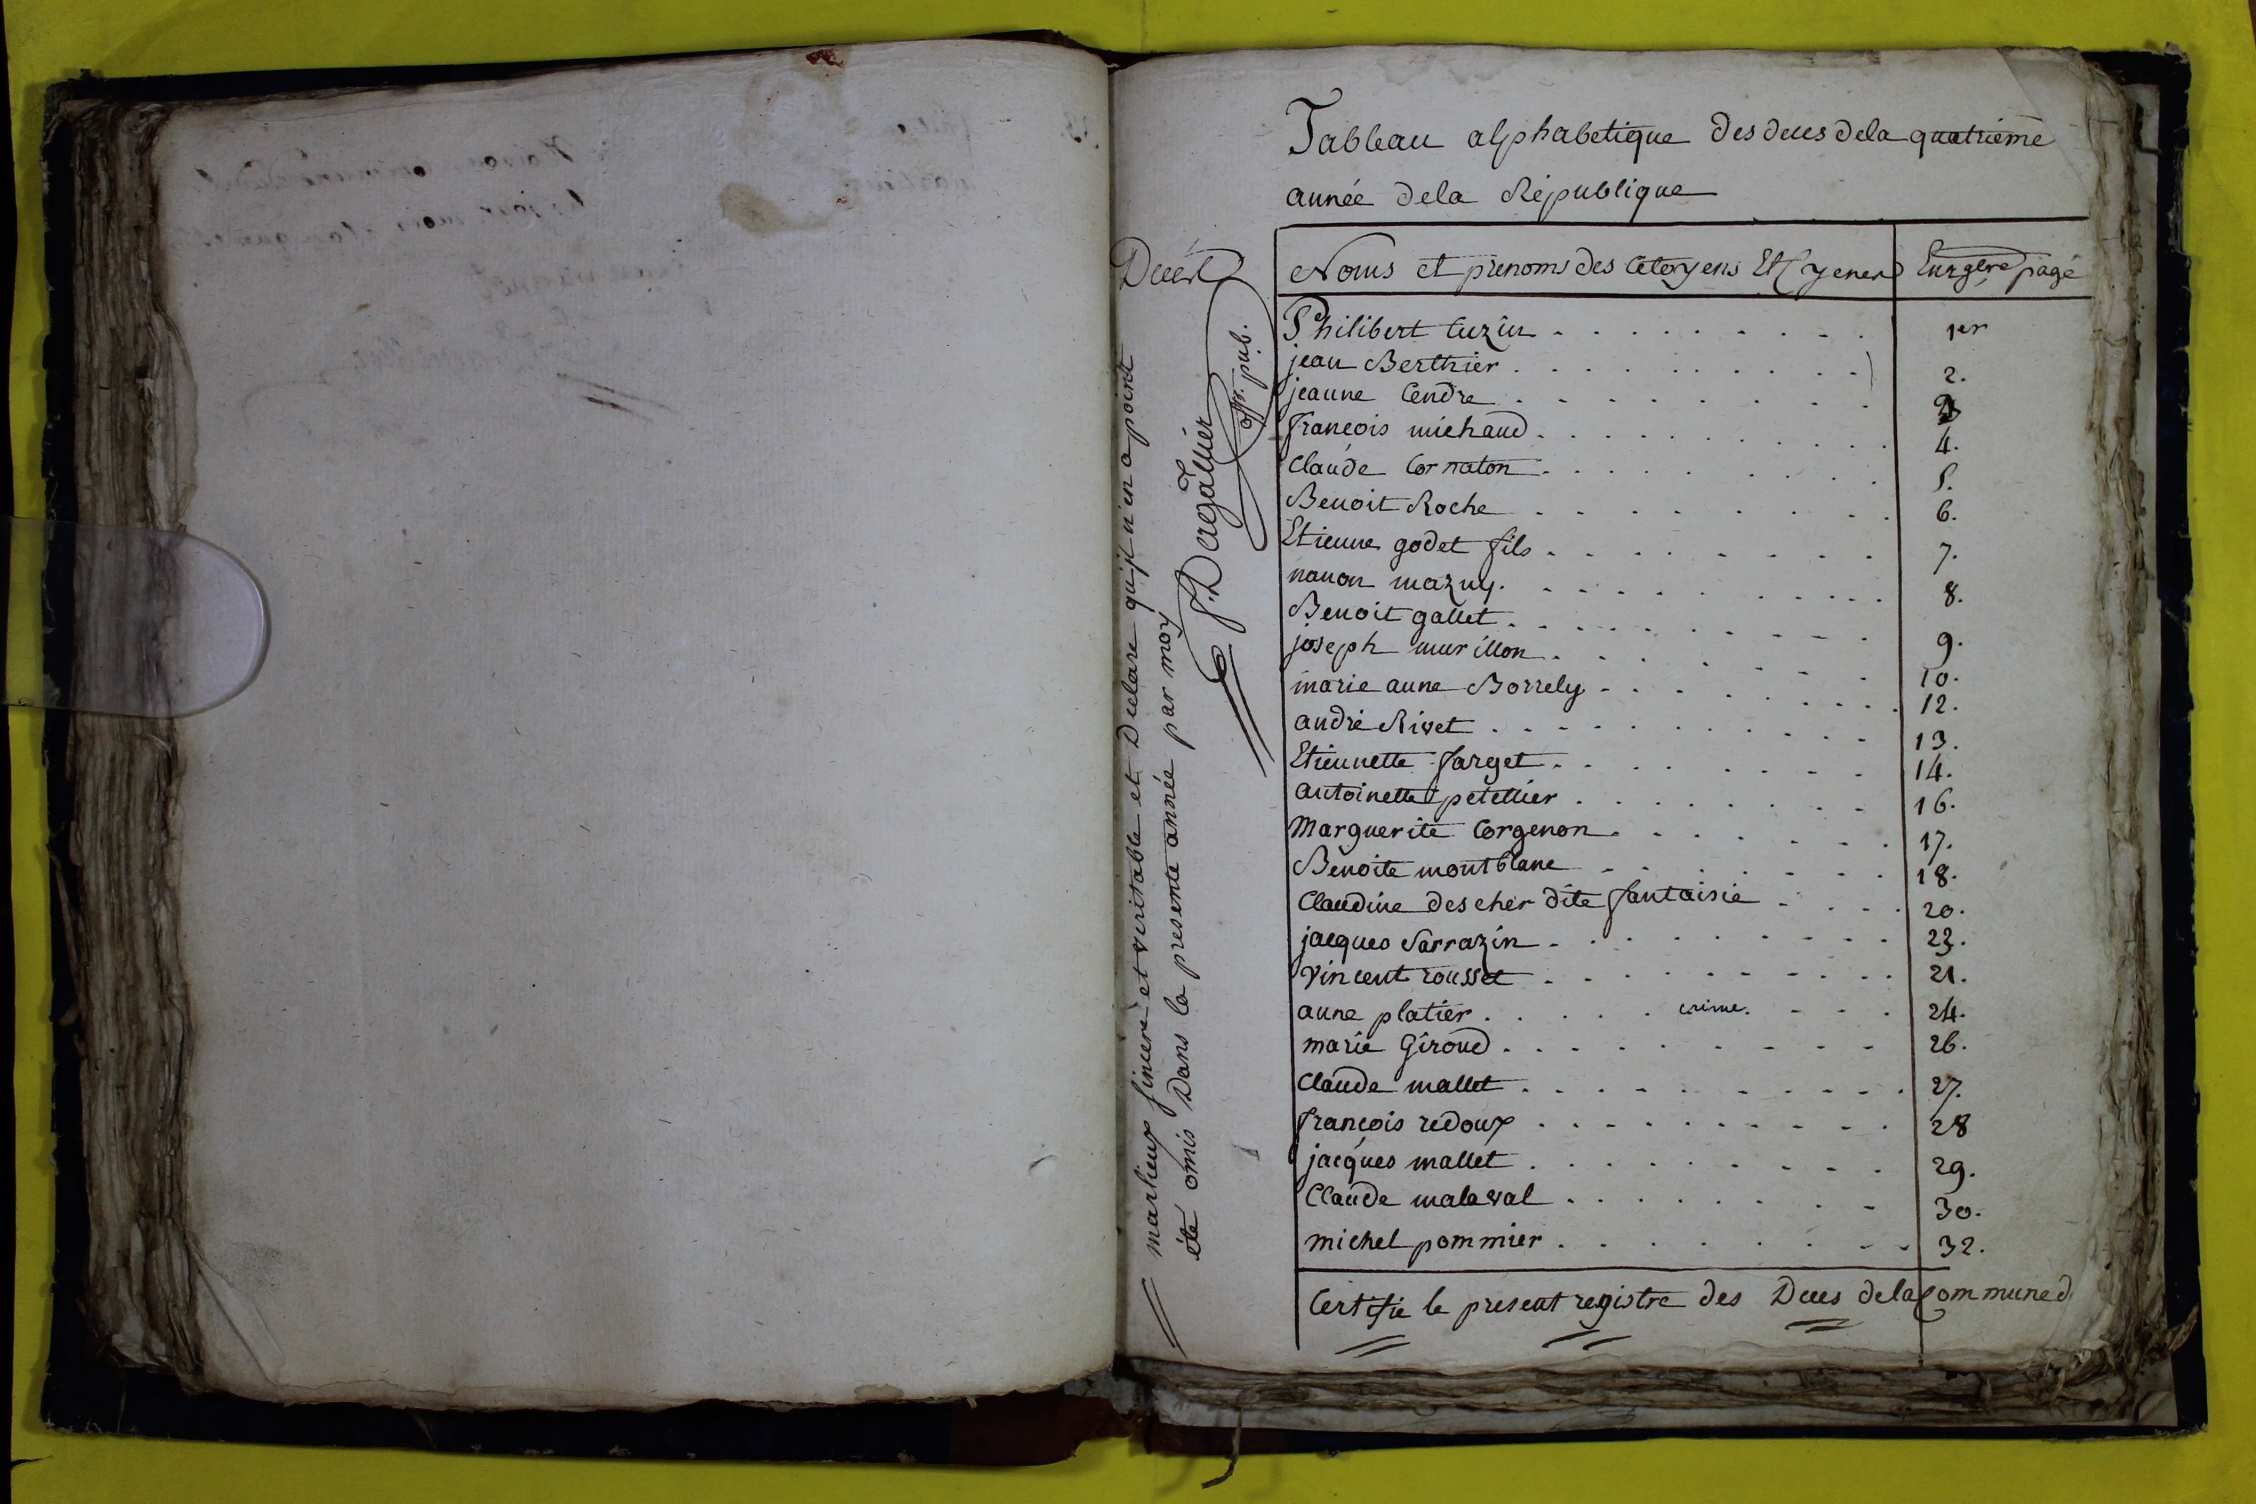 Tableau alphabetique des deces de la quatrième
année de la République
Décès
Noms et prenoms des Citoyens Et Cyenes Enrgtré page
Philibert Cuzin 1er
jean Berthier 2.
jeanne Cendre 3
françois michaud 4.
Claude Cornaton 5.
Benoit Roche 6.
Etienne godet fils 7.
nanon mazuy 8.
Benoit gallet 9.
joseph murillon 10.
marie anne Borrely 12.
andré Rivet 13.
Etiennette farget 14.
antoinette petellier 16.
Marguerite Corgenon 17.
Benoite montblanc 18.
Claudine descher dite fantaisie 20.
jacques Sarrazin 23.
Vincent rousset 21.
anne platier crime. 24.
marie Giroud 26.
Claude mallet 27.
françois redoux 28
jacques mallet 29.
Claude malaval 30.
michel pommier 32.
Certifie le present registre des Deces de la Commune d
marlieux sincere et veritable et Declare qu'il n'en a point
été omis Dans la presente année par moy
f. Dagallier off. pub.